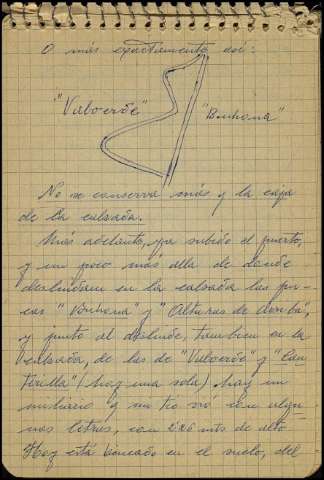 O más exactamente así:
"Valverde" "Buhona"
No se conserva más q la caja
de la calzada.
Más adelante, ya subido el puerto,
y un poco más alla de donde
deslindan en la calzada las fin-
cas " " y "Alturas de Arriba",
y junto al deslinde, tambien en la
calzada, de las de "Valverde" y "Can-
" (hay una sola) hay un
miliario q mi tío vió con algu-
nas letras, con 2'26 mts de alto
Hoy está hincado en el suelo, del